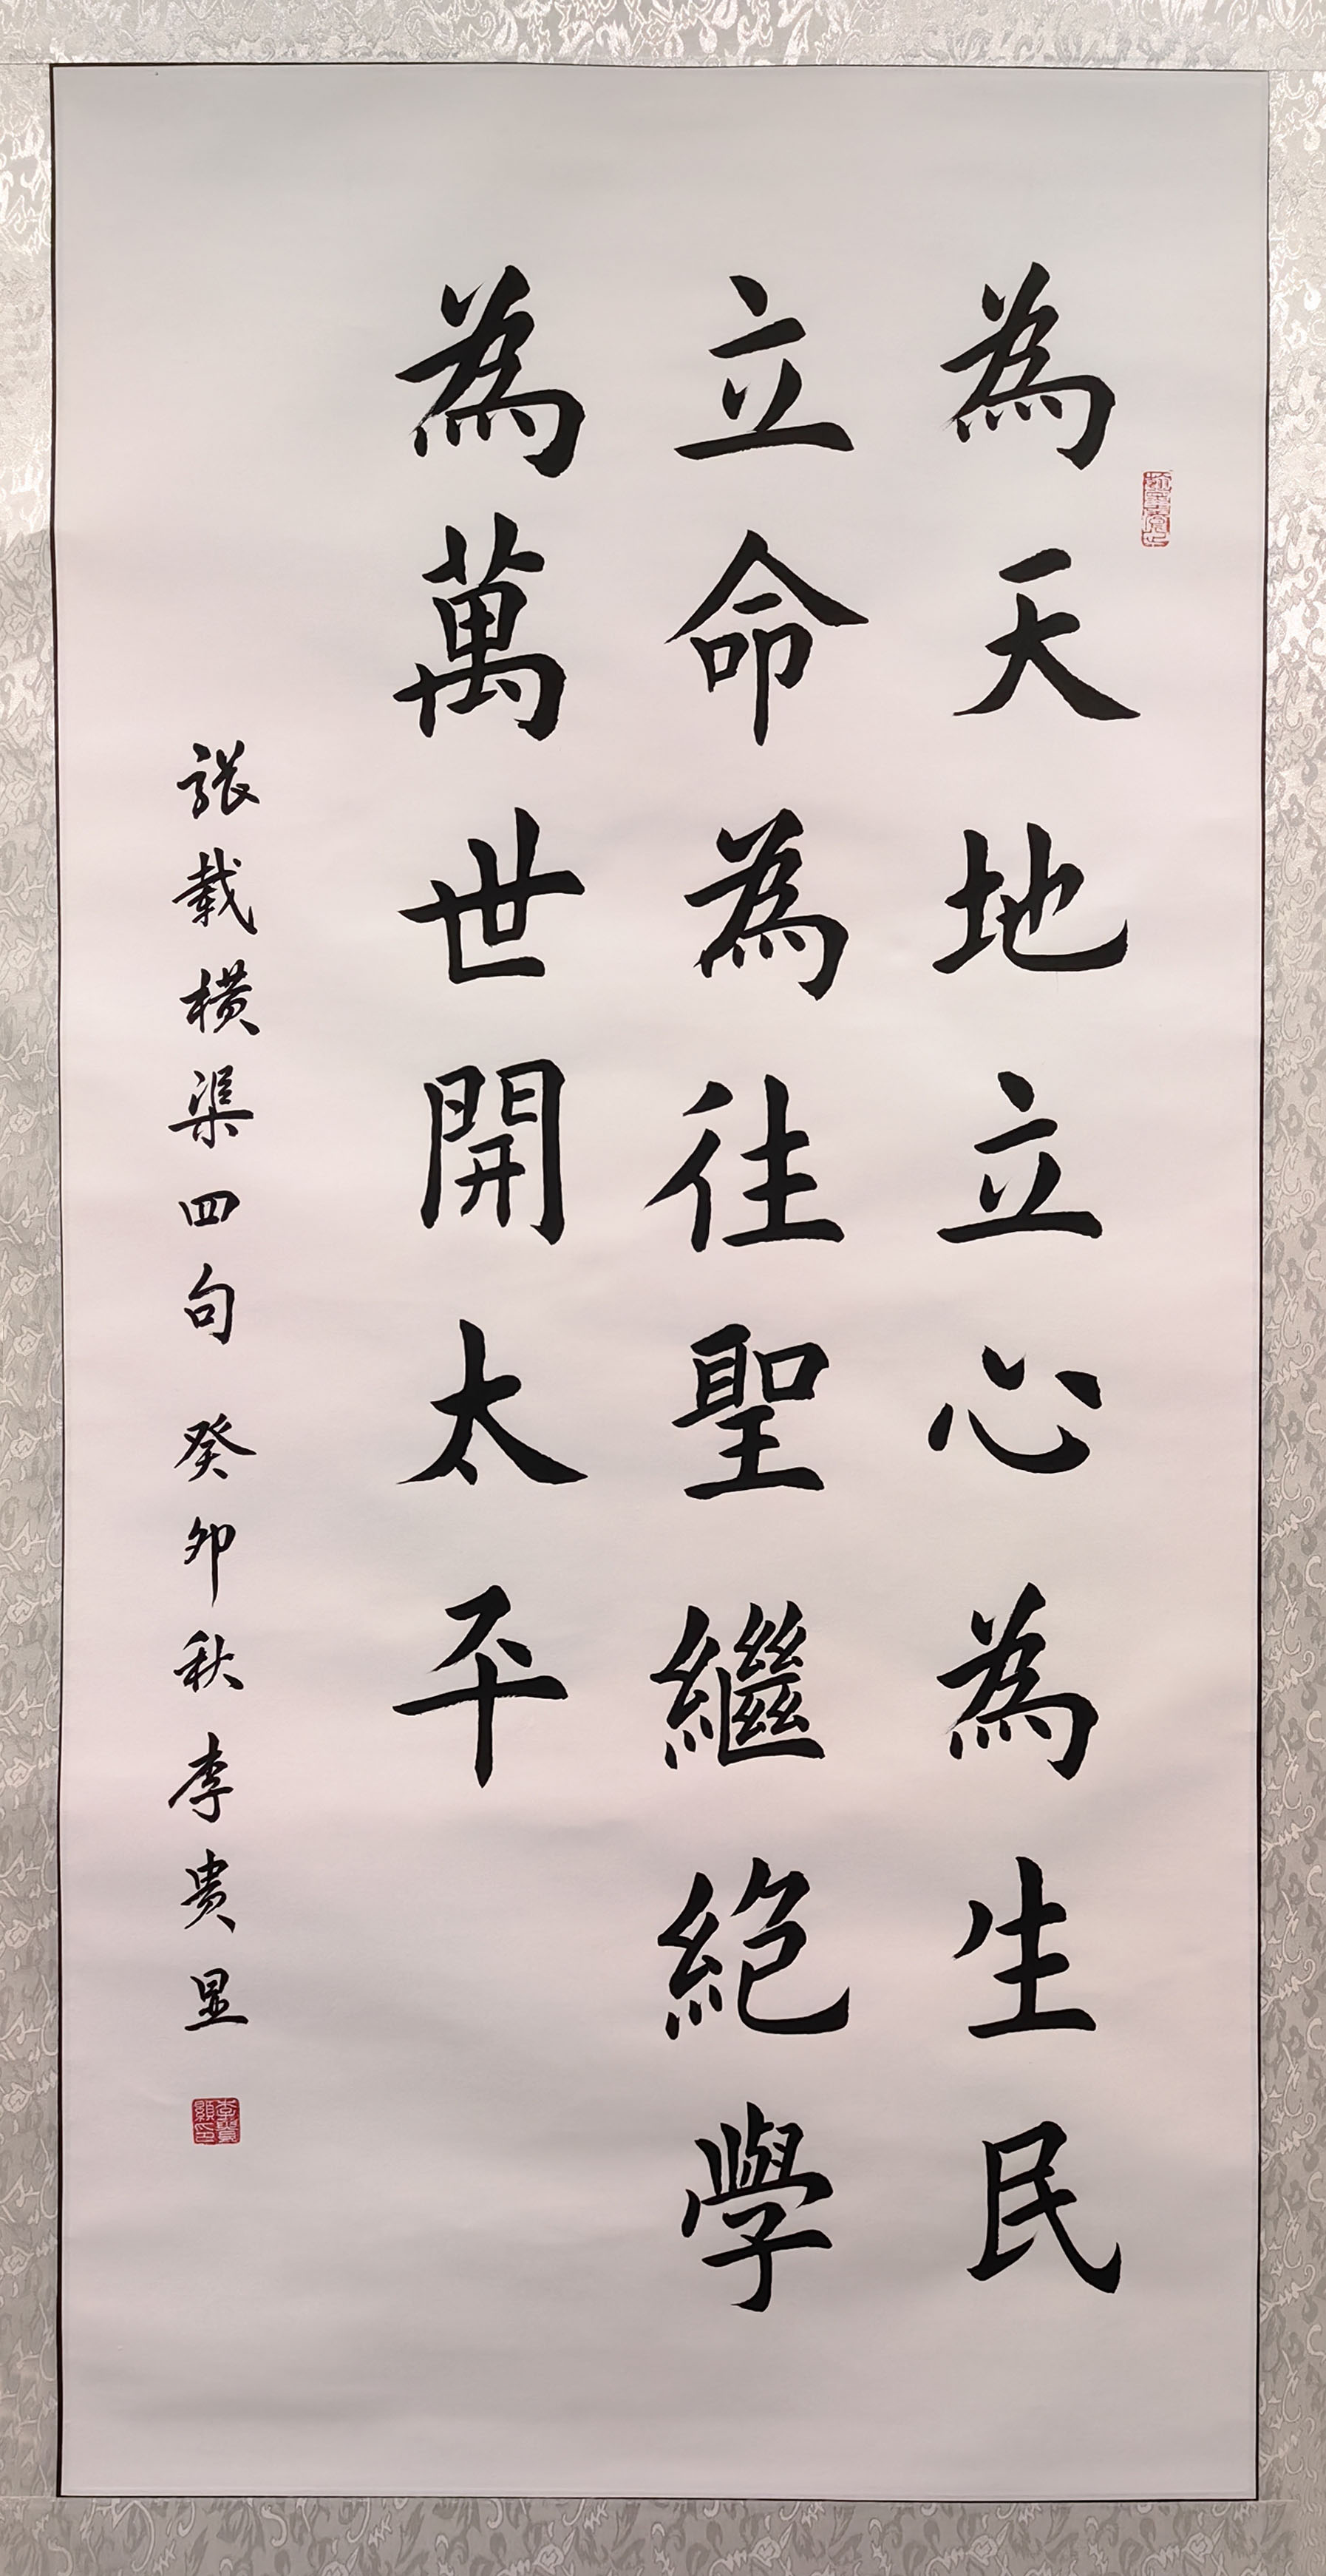 為天地立心為生民
立命為往聖繼絕學
為萬世開太平
張载橫渠四句 癸卯秋 李贵显
李貴顯印